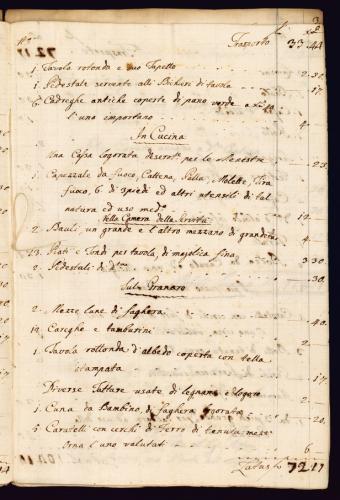 3
N.o Trasporto 33 44
1 Tavola rotonda e suo Tapello 2.30
1 Pedestale servente alli Bichieri di tavola 17
6 Cadreghe antiche coperte di pano verde
l'uno importano 4
In Cucina
Una Cassa logorata per le Menestre 23
1 Capezzale da fuoco, Cattena, Palla, Molette, Tira
fuoco, 6 di Spiedi ed altri utensili di tal
natura ed uso 12
Nella Camera della Servitù
2 Bauli, un grande e l'altro mezzano di grandezza 4
13 Piati e Tondi per tavola di majolica fina 3 30
2 Pedestali di 30
Sul Granaro
2 Mezze lune di Paghera 2
12 Careghe e tamburini 40
1 Tavola rottonda d'albedo coperta con tella
stampata 17
Diverse Tutture usate di legname e logore 2
1 Cuna da Bambino, di Paghera logorata 20
5 Caratelli con cerchi di Ferro di tenuta mezz
orna l'uno valutati 6
Latus 72 17